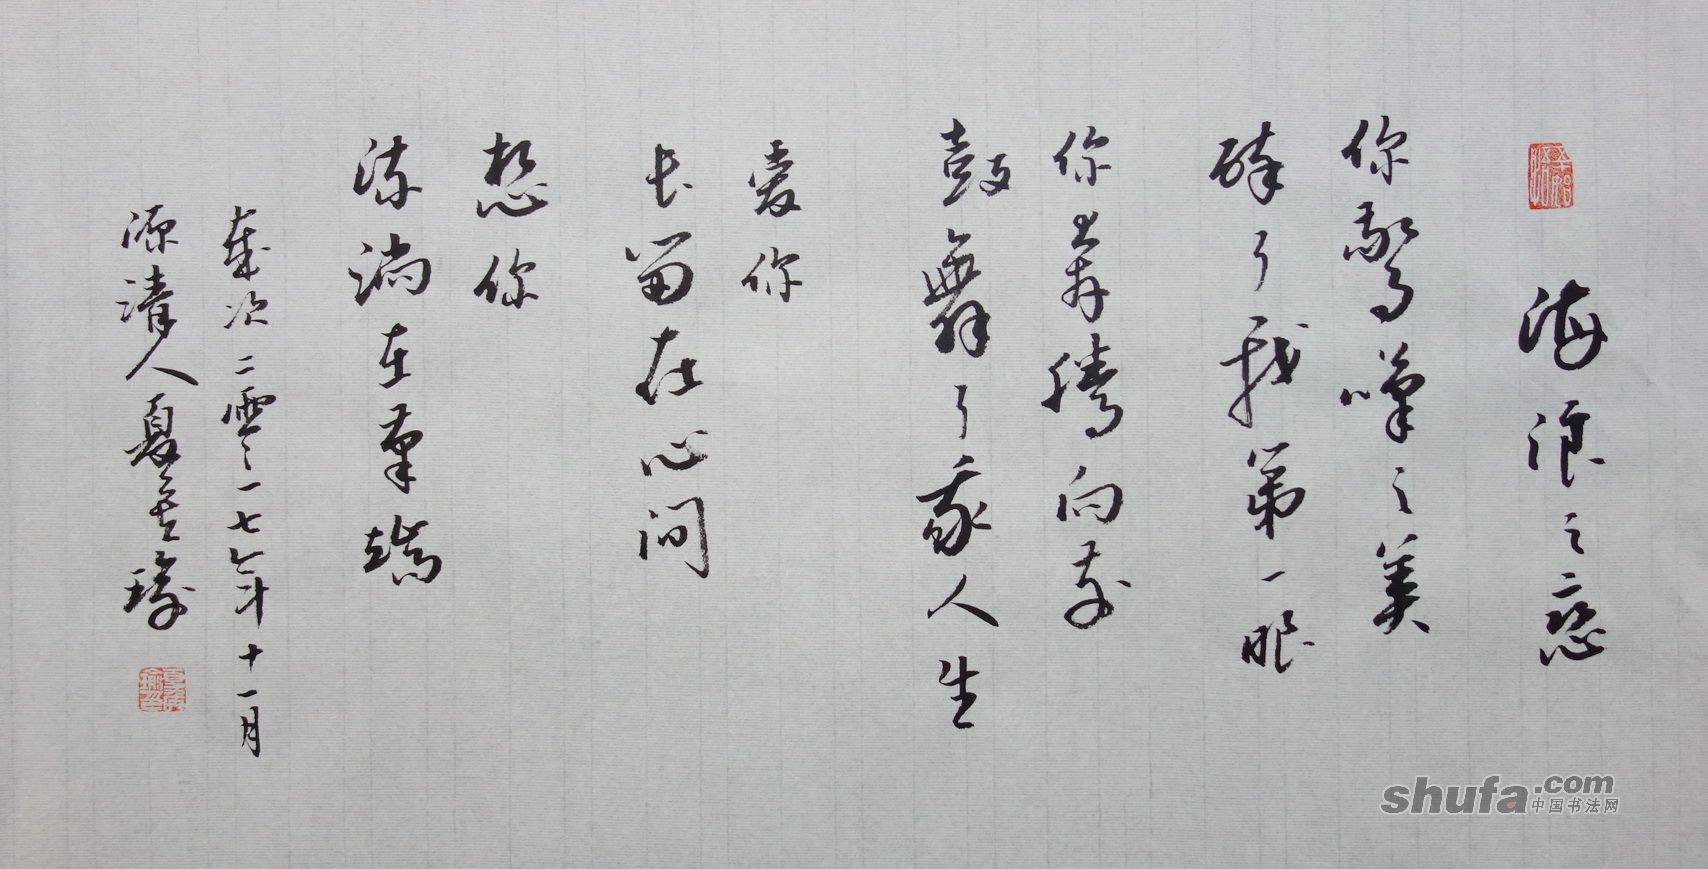 海浪之恋
你驚嘯之美
醉了我第一眼
你奔腾向前
鼓舞了我人生
爱你
长留在心间
想你
流淌在筆端
歲次二零一七年十一月
源清人夏瑜
shufa.com
中国书法网